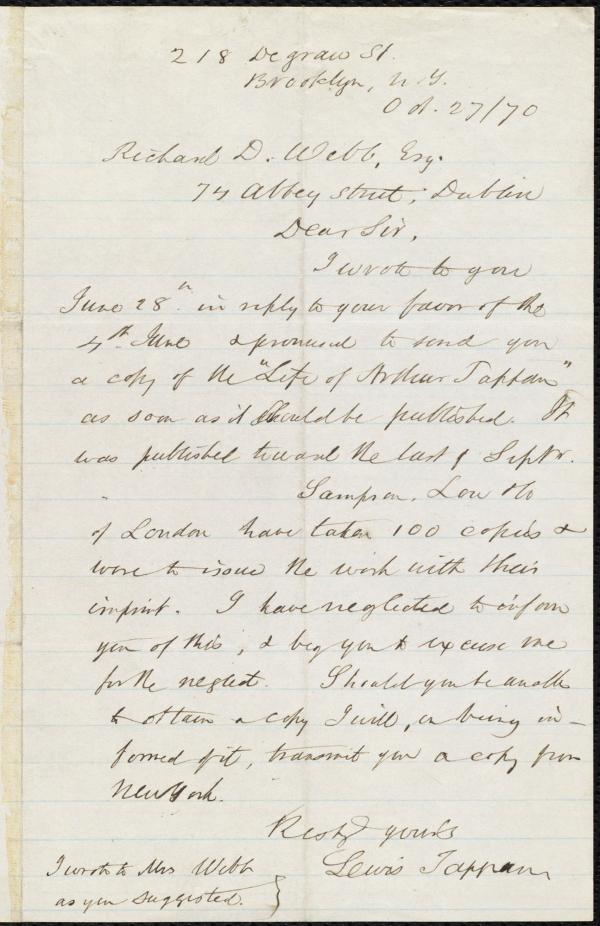 218 Degraw St.
Brooklyn, N.Y.
Oct. 27/70
Richard D. Webb, Esq.
74 Abbey Street, Dublin
Dear Sir,
I wrote to you
June 28th in reply to your favor of the
4th June & promised to send you
a copy of the "Life of Arthur Tappan"
as soon as it should be published. It
was published toward the last of Septr.
Sampson, Low & Co
of London have taken 100 copies &
were to issue the work with their
imprint. I have neglected to inform
you of this, & beg you to excuse me
for the neglect. Should you be unable
to obtain a copy I will, on being in-
formed of it, transmit you a copy from
New York.
Respy yours
Lewis Tappan
I wrote to Mrs Webb
as you suggested.